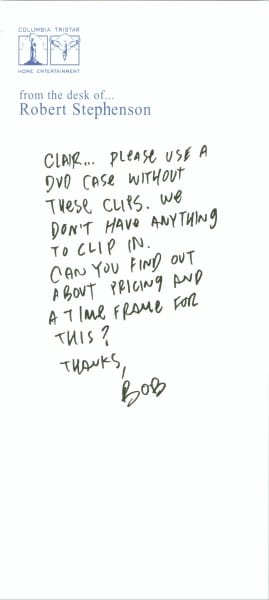 COLUMBIA TRISTAR
HOME ENTERTAINMENT
from the desk of...
Robert Stephenson
CLAIR... PLEASE USE A
DVD CASE WITHOUT
THESE CLIPS. WE
DON'T HAVE ANYTHING
TO CLIP IN.
CAN YOU FIND OUT
ABOUT PRICING AND
A TIME FRAME FOR
THIS?
THANKS,
BOB